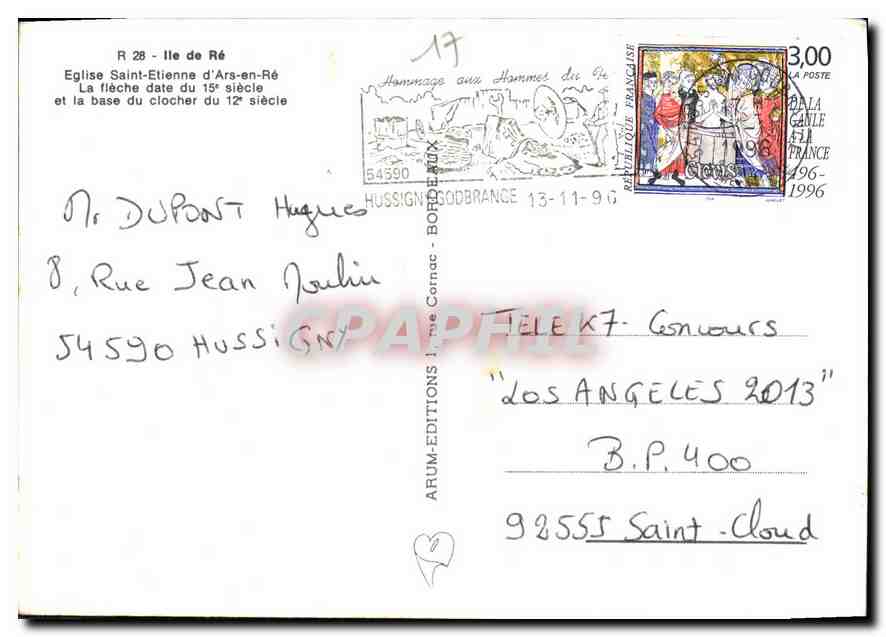 17
R 28 - Ile de Ré
Eglise Saint-Etienne d'Ars-en-Ré
La flèche date du 15e siècle
et la base du clocher du 12e siècle
Hommage aux Hommes du Fe
54590
HUSSIGNY GODBRANGE 13-11-96
RÉPUBLIQUE FRANÇAISE
3,00
LA POSTE
DE LA
GAULE
A LA
FRANCE
496-
1996
1996
Mr DUPONT Hugues
8, Rue Jean Moulin
54590 HUSSIGNY
ARUM-EDITIONS 1, rue Cornac - BORDEAUX
CPAPHIL
TELE K7 - Concours
"LOS ANGELES 2013"
B.P. 400
92555 Saint-Cloud